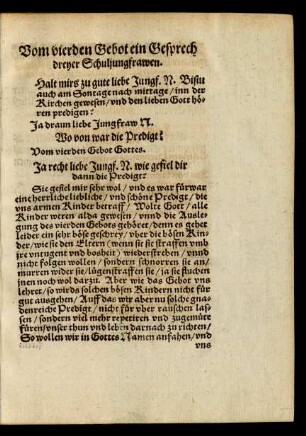 Vom vierden Gebot ein Gesprech
dreyer Schuljungfrawen.
Halt mirs zu gute liebe Jungf. N. Bistu
auch am Sontage nach mittage / inn der
Kirchen gewesen / vnd den lieben Gott hö-
ren predigen?
Ja draun liebe Jungfraw N.
Wo von war die Predigt?
Vom vierden Gebot Gottes.
Ja recht liebe Jungf. N. wie gefiel dir
dann die Predigt?
Sie gefiel mir sehr wol / vnd es war fürwar
eine herrliche liebliche / vnd schöne Predigt / die
vns armen Kinder betraff / Wolte Gott / alle
Kinder weren alda gewesen / vnnd die Ausle-
gung des vierden Gebots gehöret / denn es gehet
leider ein sehr böse geschrey / vber die bösen Kin-
der / wie sie den Eltern (wenn sie sie straffen vmb
jre vntugent vnd bosheit) wiederstreben / vnnd
nicht folgen wollen / sondern schnorren sie an /
murren wider sie / lügenstraffen sie / ja sie fluchen
jnen noch wol darzu. Aber wie das Gebot vns
lehret / so wirds solchen bösen Kindern nicht für
gut ausgehen / Auff das wir aber nu solche gna-
denreiche Predigt / nicht für vber rauschen las-
sen / sondern viel mehr repetiren vnd zugemüte
füren / vnser thun vnd leben darnach zu richten /
So wollen wir in Gottes Namen anfahen / vnd
vns